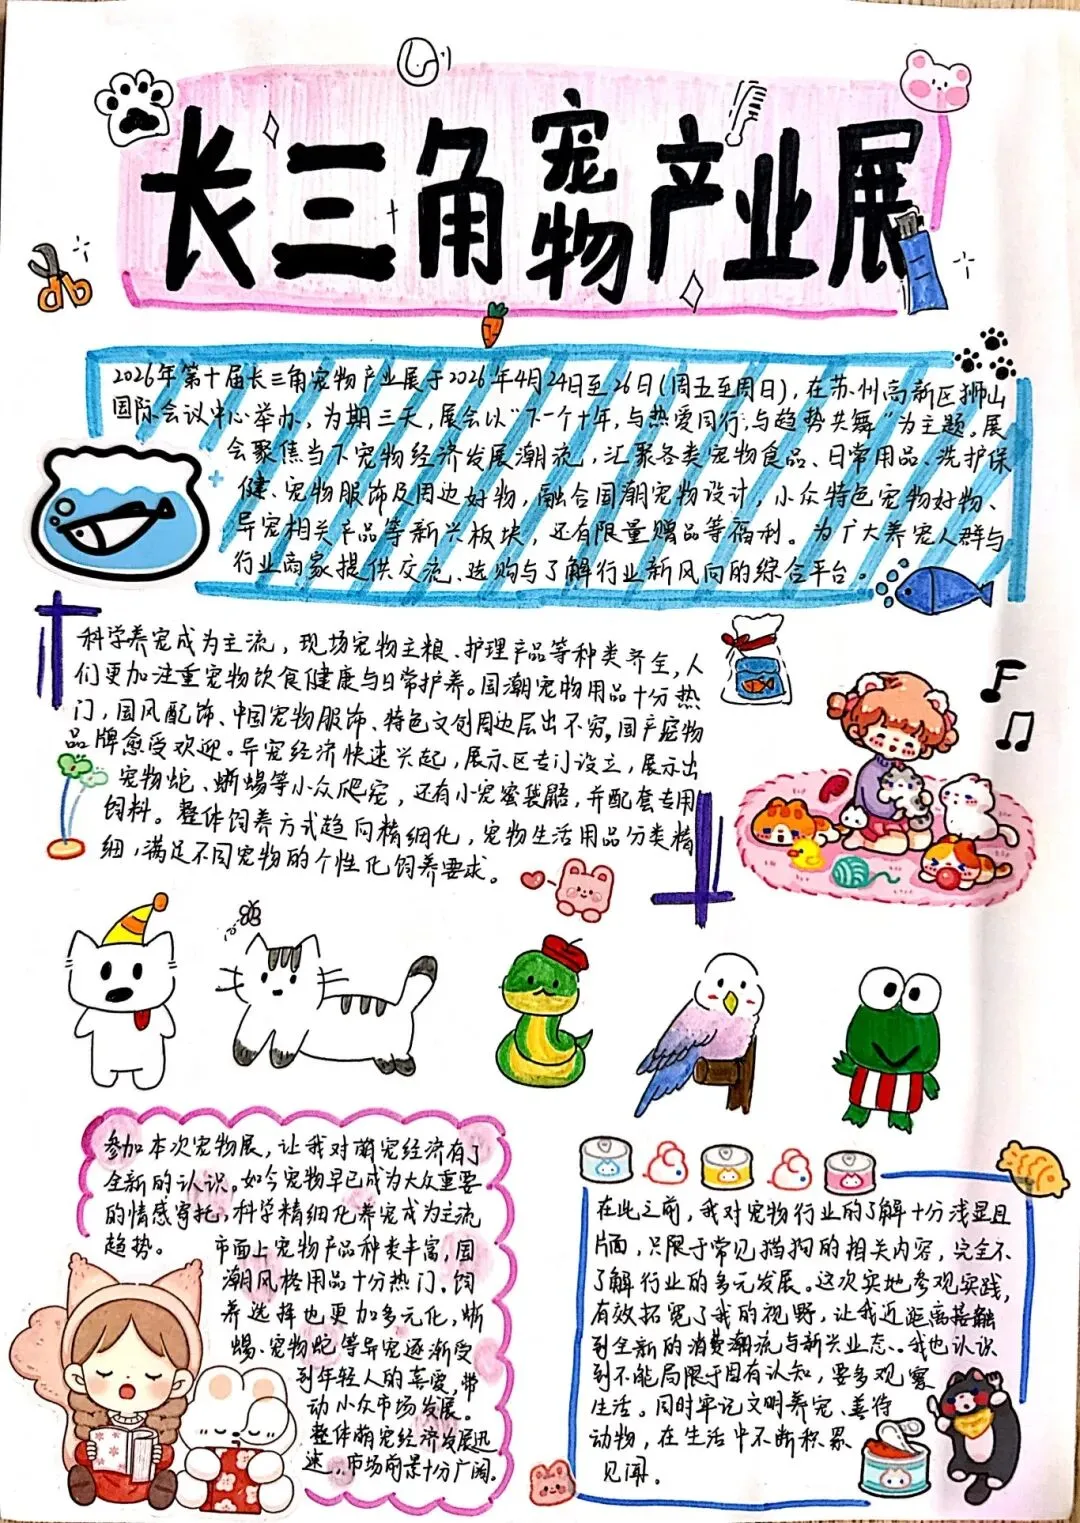 长三角宠物产业展
2026年第十届长三角宠物产业展于2026年4月24日至26日(周五至周日),在苏州高新区狮山
国际会议中心举办,为期三天,展会以“下一个十年,与热爱同行,与趋势共舞”为主题。展
会聚焦当下宠物经济发展潮流,汇聚各类宠物食品、日常用品、洗护保
健、宠物服饰及周边好物,融合国潮宠物设计,小众特色宠物好物、
异宠相关产品等新兴板块,还有限量赠品等福利。为广大养宠人群与
行业商家提供交流、选购与了解行业新风向的综合平台。
科学养宠成为主流,现场宠物主粮、护理产品等种类齐全,人
们更加注重宠物饮食健康与日常护养。国潮宠物用品十分热
门,国风配饰、中国宠物服饰、特色文创周边层出不穷,国产宠物
品牌愈受欢迎。异宠经济快速兴起,展示区专门设立,展示出
宠物蛇、蜥蜴等小众爬宠,还有小宠蜜袋鼯,并配套专用
饲料。整体饲养方式趋向精细化,宠物生活用品分类精
细,满足不同宠物的个性化饲养要求。
参加本次宠物展,让我对萌宠经济有了
全新的认识。如今宠物早已成为大众重要
的情感寄托,科学精细化养宠成为主流
趋势。市面上宠物产品种类丰富,国
潮风格用品十分热门。饲
养选择也更加多元化,蜥
蜴、宠物蛇等异宠逐渐受
到年轻人的喜爱,带
动小众市场发展。
整体萌宠经济发展迅
速,市场前景十分广阔。
在此之前,我对宠物行业的了解十分浅显且
片面,只限于常见猫狗的相关内容,完全不
了解行业的多元发展。这次实地参观实践,
有效拓宽了我的视野,让我近距离接触
到全新的消费潮流与新兴业态。我也认识
到不能局限于固有认知,要多观察
生活。同时牢记文明养宠、善待
动物,在生活中不断积累
见闻。